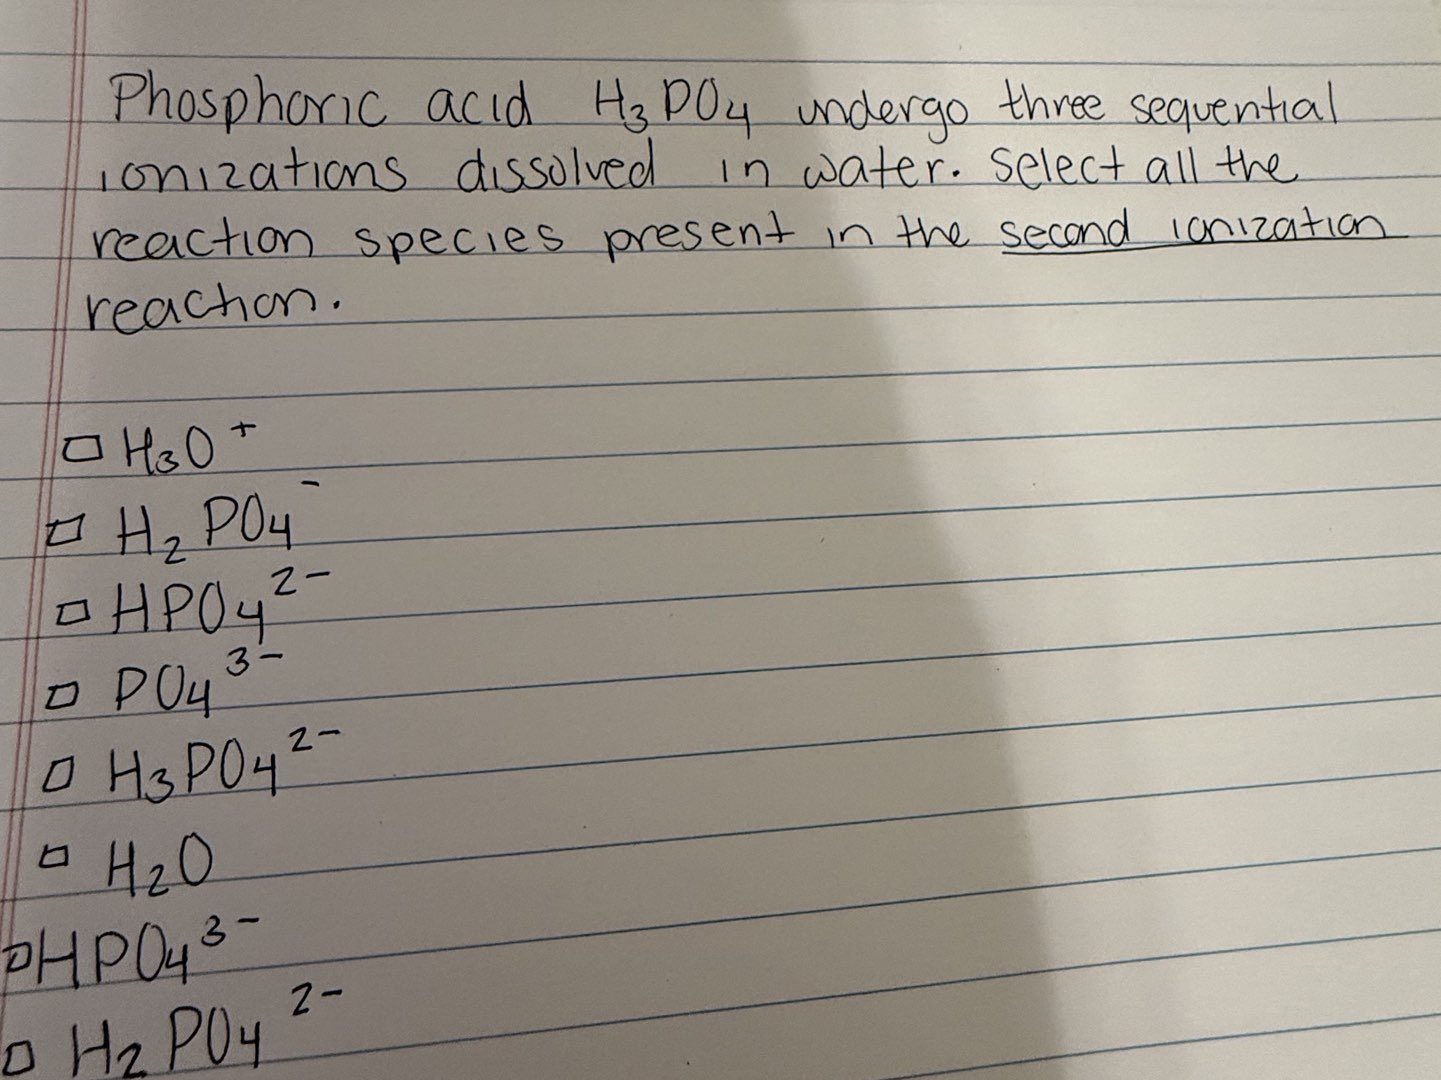 Phosphoric acid H₃PO₄ undergo three sequential
ionizations dissolved in water. Select all the
reaction species present in the second ionization
reaction.
□ H₃O⁺
□ H₂PO₄⁻
□ HPO₄²⁻
□ PO₄³⁻
□ H₃PO₄²⁻
□ H₂O
□ HPO₄³⁻
□ H₂PO₄²⁻